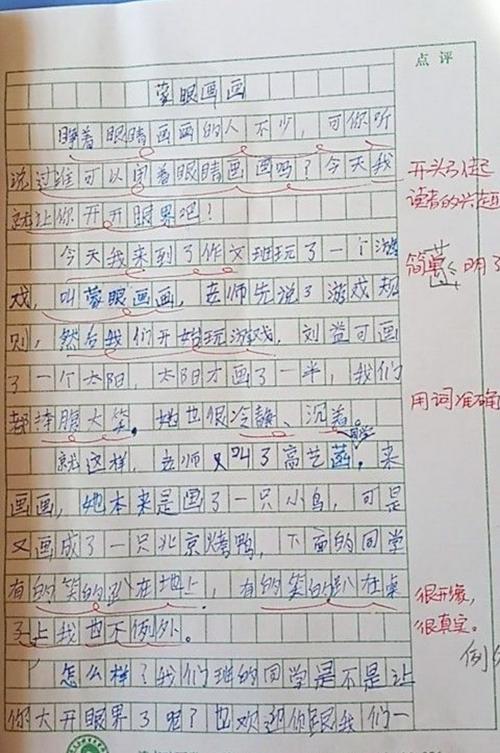 点评
蒙眼画画
睁着眼睛画画的人不少，可你听
说过谁可以闭着眼睛画画吗？今天我
就让你开开眼界吧！
开头引起
读者的兴趣
今天我来到了作文班玩了一个游
简单明了
戏，叫蒙眼画画，老师先说了游戏规
则，然后我们开始玩游戏，刘益可画
了一个太阳，太阳才画了一半，我们
都捧腹大笑。她也很冷静、沉着。
用词准确
就这样，老师又叫了高艺菡同学，来
画画，她本来是画了一只小鸟，可是
又画成了一只北京烤鸭，下面的同学
有的笑的趴在地上，有的笑的趴在桌
子上我也不例外。
很形象，
很真实。
例
怎么样？我们班的同学是不是让
你大开眼界了呢？也欢迎你跟我们一